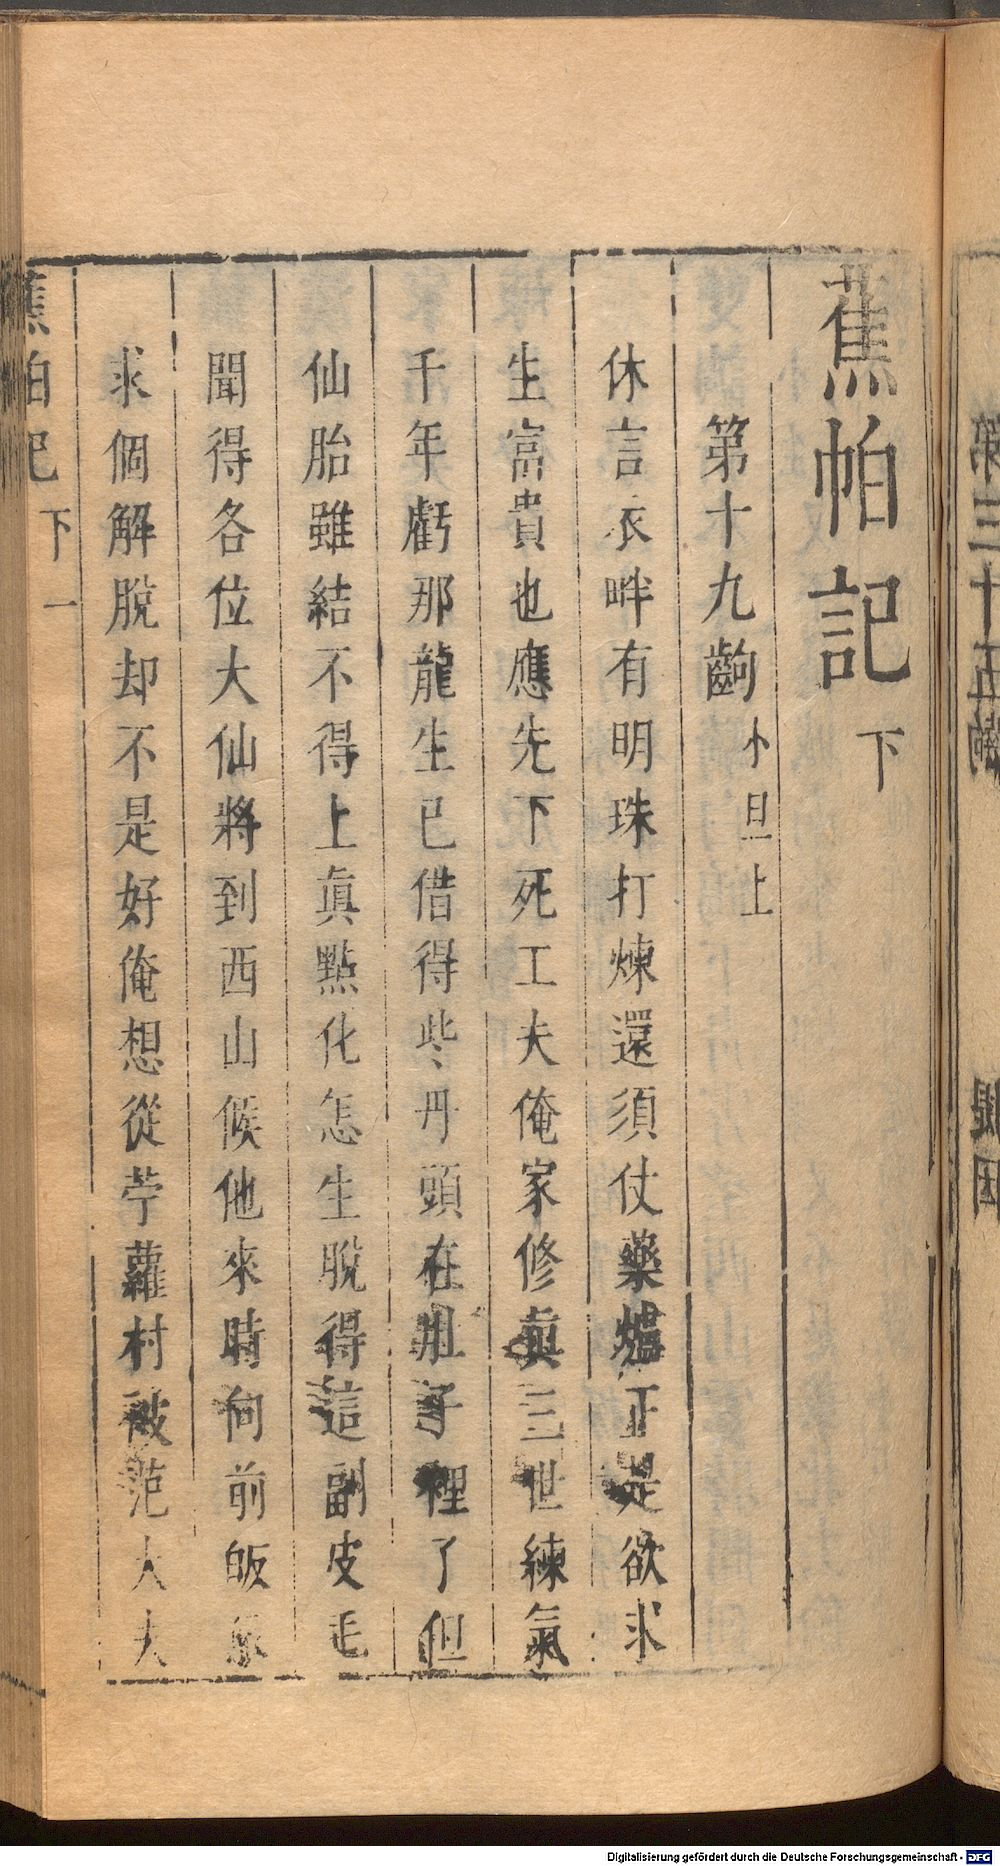 蕉帕記 下
第十九齣 小旦上
休言衣畔有明珠打煉還須仗藥爐正是欲求
生富貴也應先下死工夫俺家修眞三世練氣
千年虧那龍生已借得些丹頭在肚子裡了但
仙胎雖結不得上眞點化怎生脫得這副皮毛
聞得各位大仙將到西山候他來時向前皈
求個解脫却不是好俺想從苧蘿村被范大夫
蕉帕記 下 一
第三十五齣
Digitalisierung gefördert durch die Deutsche Forschungsgemeinschaft - DFG